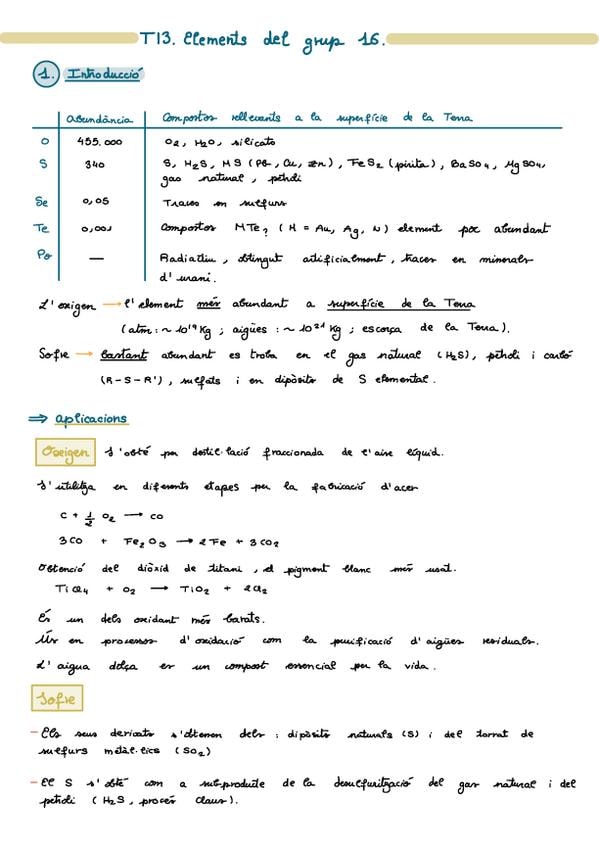 T13. Elements del grup 16.
1. Introducció
Abundància Compostos rellevants a la superfície de la Terra
O 455.000 O2, H2O, silicats
S 340 S, H2S, MS (Pb, Cu, Zn), FeS2 (pirita), BaSO4, MgSO4,
gas natural, petroli
Se 0,05 Traces en sulfurs
Te 0,001 Compostos MTe2 (M = Au, Ag, N) element poc abundant
Po — Radiatiu, obtingut artificialment, traces en minerals
d'urani.
L'oxigen → l'element més abundant a superfície de la Terra
(atm: ~ 10^19 Kg ; aigües : ~ 10^21 Kg ; escorça de la Terra).
Sofre → bastant abundant es troba en el gas natural (H2S), petroli i carbó
(R-S-R'), sulfats i en dipòsits de S elemental.
⇒ Aplicacions
Oxigen S'obté per destil·lació fraccionada de l'aire líquid.
S'utilitza en diferents etapes per la fabricació d'acer
C + 1/2 O2 → CO
3CO + Fe2O3 → 2Fe + 3CO2
Obtenció del diòxid de titani, el pigment blanc més usat.
TiCl4 + O2 → TiO2 + 2Cl2
És un dels oxidant més barats.
Ús en processos d'oxidació com la purificació d'aigües residuals.
L'aigua dolça es un compost essencial per la vida.
Sofre
- Els seus derivats s'obtenen dels : dipòsits naturals (S) i del torrat de
sulfurs metàl·lics (SO2)
- El S s'obté com a subproducte de la desulfurització del gas natural i del
petroli (H2S, procés Claus).